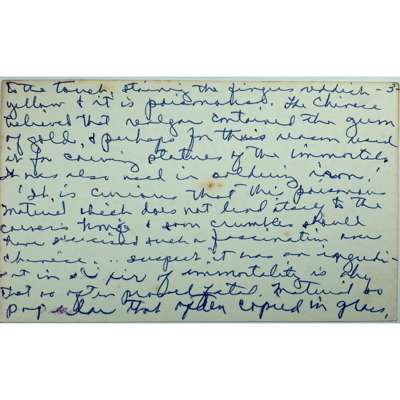 to the touch, staining the fingers reddish- 3-
yellow & it is poisonous. The Chinese
believed that realgar contained the germ
of gold, & perhaps for this reason used
it for carving statues of the immortals.
It was also used in
"It is curious that this poisonous
material which does not lend itself to the
carver's & soon crumbles should
have exercised such a fascination over
Chinese... suspect it was an ingredi-
ent in elixir of immortality is why
that so often proved fatal. Material so
popular that often copied in glass.